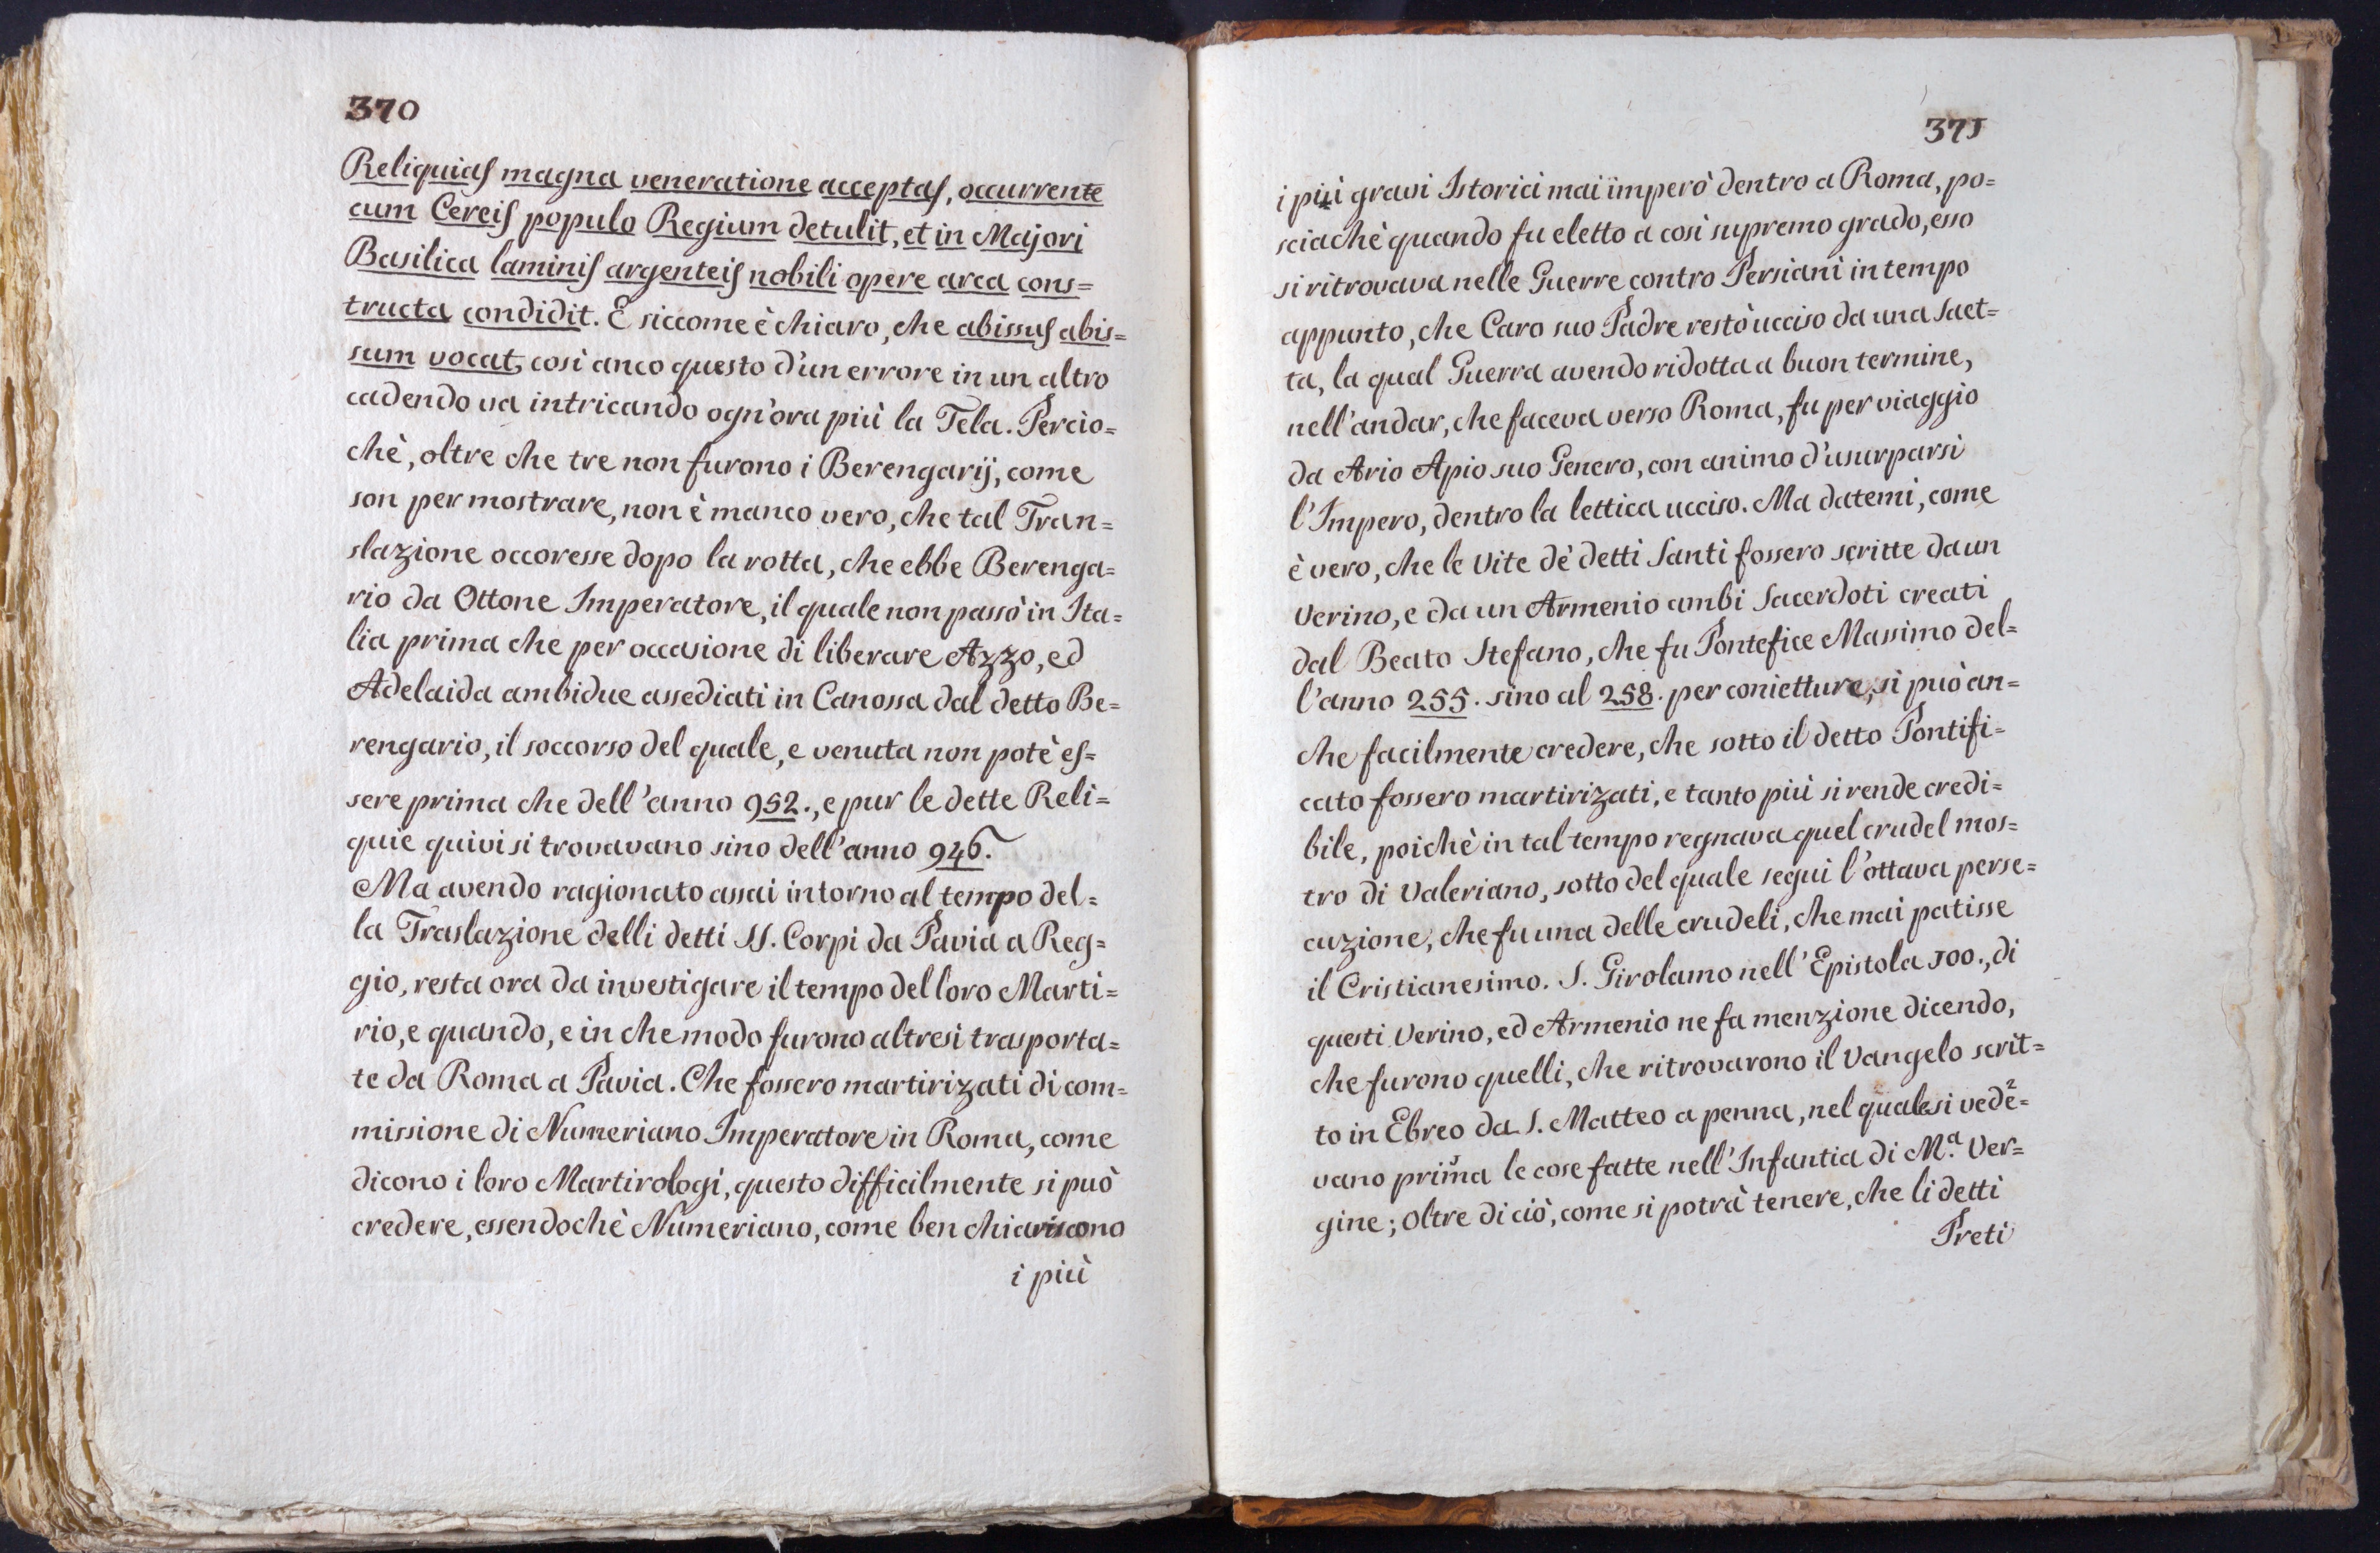 370
Reliquias magna veneratione acceptas, occurrente
cum Cereis populo Regium detulit, et in Majori
Basilica laminis argenteis nobili opere arca cons=
tructa condidit. E siccome è chiaro, che abissus abis=
sum vocat, così anco questo d'un errore in un altro
cadendo va intricando ogn'ora più la Tela. Percio=
chè, oltre che tre non furono i Berengarij, come
son per mostrare, non è manco vero, che tal Tran=
slazione occoresse dopo la rotta, che ebbe Berenga=
rio da Ottone Imperatore, il quale non passò in Ita=
lia prima che per occasione di liberare Azzo, ed
Adelaida ambidue assediati in Canossa dal detto Be=
rengario, il soccorso del quale, e venuta non potè es=
sere prima che dell'anno 952., e pur le dette Reli=
quie quivi si trovavano sino dell'anno 946.
Ma avendo ragionato assai intorno al tempo del=
la Traslazione delli detti SS. Corpi da Pavia a Reg=
gio, resta ora da investigare il tempo del loro Marti=
rio, e quando, e in che modo furono altresì trasporta=
te da Roma a Pavia. Che fossero martirizati di com=
missione di Numeriano Imperatore in Roma, come
dicono i loro Martirologi, questo difficilmente si può
credere, essendochè Numeriano, come ben chiariscono
i più
371
i più gravi Istorici mai imperò dentro a Roma, po=
sciachè quando fu eletto a così supremo grado, esso
si ritrovava nelle Guerre contro Persiani in tempo
appunto, che Caro suo Padre restò ucciso da una Saet=
ta, la qual Guerra avendo ridotta a buon termine,
nell'andar, che faceva verso Roma, fu per viaggio
da Ario Apio suo Genero, con animo d'usurparsi
l'Impero, dentro la lettica ucciso. Ma datemi, come
è vero, che le Vite dè detti Santi fossero scritte da un
Verino, e da un Armenio ambi Sacerdoti creati
dal Beato Stefano, che fu Pontefice Massimo del=
l'anno 255. sino al 258. per conietture, si può an=
che facilmente credere, che sotto il detto Pontifi=
cato fossero martirizati, e tanto più si rende credi=
bile, poichè in tal tempo regnava quel crudel mos=
tro di Valeriano, sotto del quale seguì l'ottava perse=
cuzione, che fu una delle crudeli, che mai patisse
il Cristianesimo. S. Girolamo nell'Epistola 100., di
questi Verino, ed Armenio ne fa menzione dicendo,
che furono quelli, che ritrovarono il Vangelo scrit=
to in Ebreo da S. Matteo a penna, nel quale si vede=
vano prima le cose fatte nell'Infantia di M.a Ver=
gine; Oltre di ciò, come si potrà tenere, che li detti
Preti